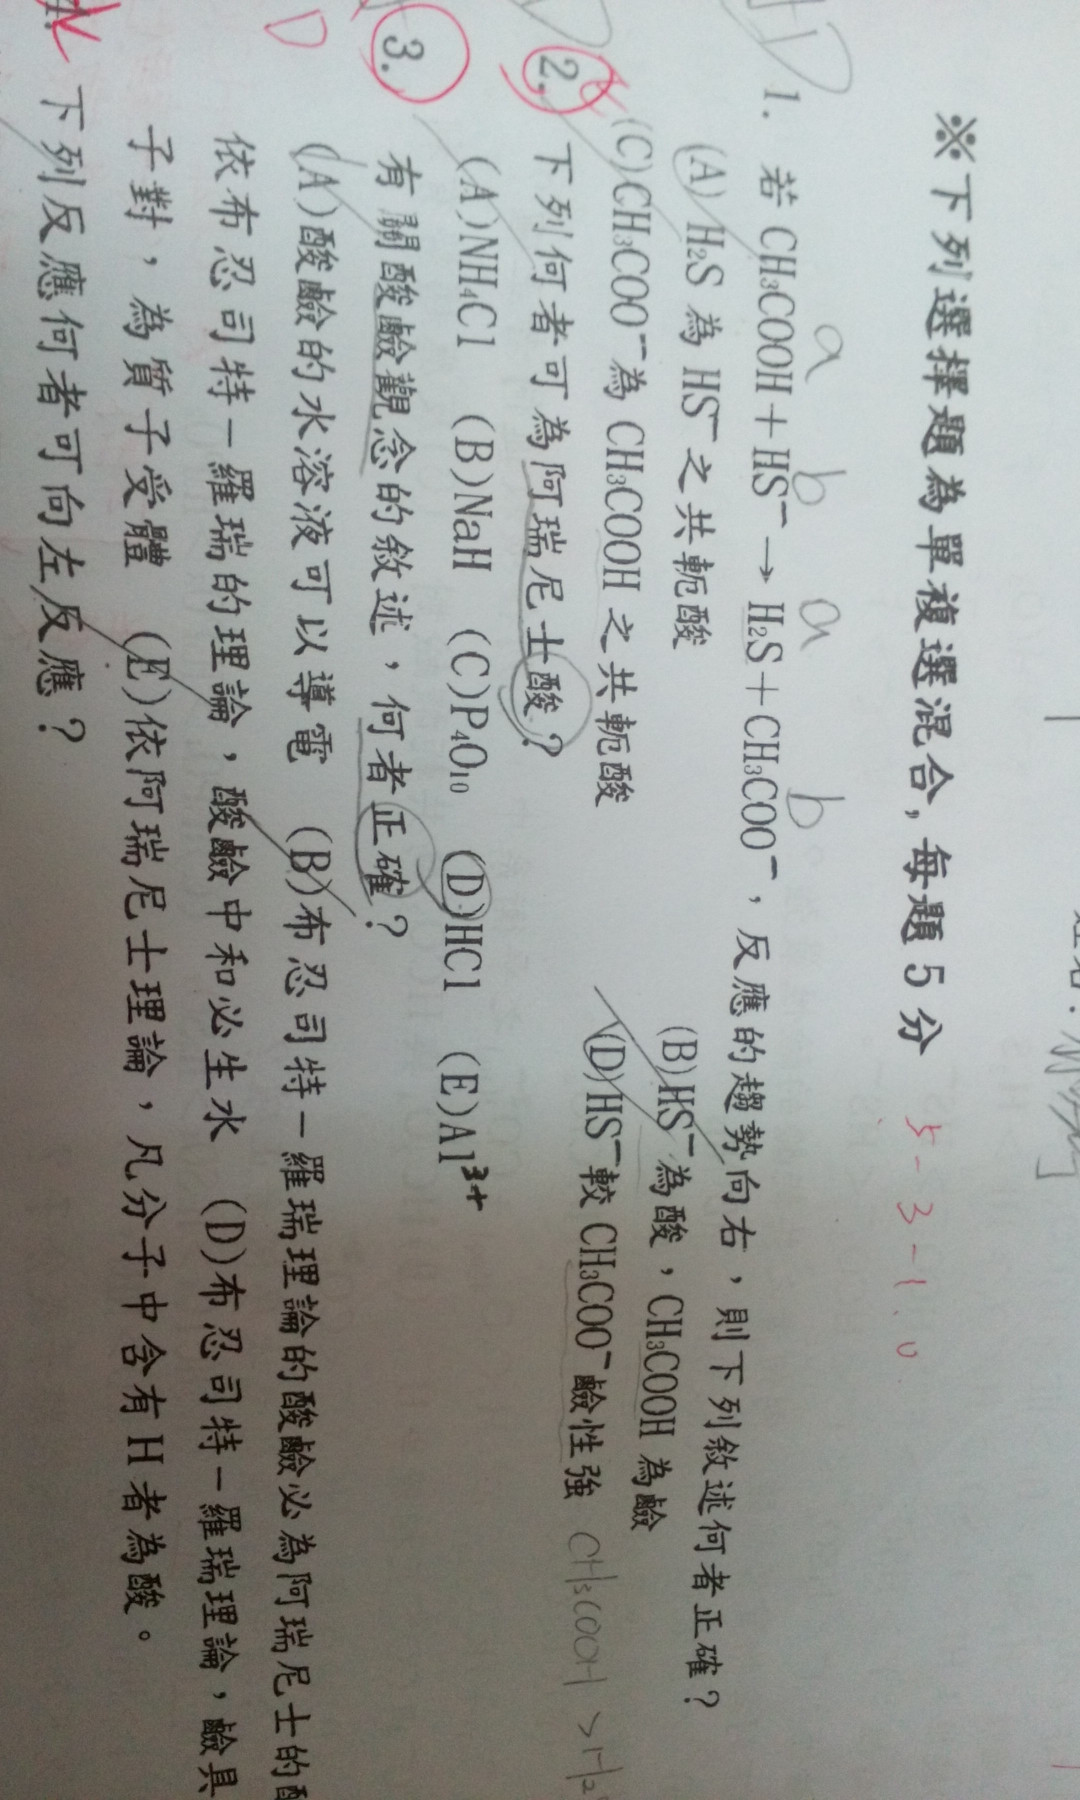 ※下列選擇題為單複選混合,每題5分 5-3-1.0
a b a b
1. 若 CH₃COOH+HS⁻→H₂S+CH₃COO⁻，反應的趨勢向右，則下列敘述何者正確？
(A) H₂S 為 HS⁻之共軛酸 (B)HS⁻為酸，CH₃COOH 為鹼
(C)CH₃COO⁻為 CH₃COOH 之共軛酸 (D)HS⁻較 CH₃COO⁻鹼性強 CH₃COOH > H₂
2. 下列何者可為阿瑞尼士酸？
(A)NH₄Cl (B)NaH (C)P₄O₁₀ (D)HCl (E)Al³⁺
3. 有關酸鹼觀念的敘述，何者正確？
D (A)酸鹼的水溶液可以導電 (B)布忍司特—羅瑞理論的酸鹼必為阿瑞尼士的酸
依布忍司特—羅瑞的理論，酸鹼中和必生水 (D)布忍司特—羅瑞理論，鹼具
子對，為質子受體 (E)依阿瑞尼士理論，凡分子中含有 H 者為酸。
下列反應何者可向左反應？